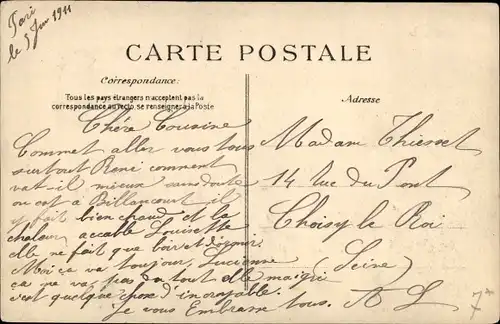 Pari
le 5 Juin 1911
CARTE POSTALE
Correspondance:
Tous les pays étrangers n'acceptent pas la
correspondance au recto, se renseigner à la Poste
Adresse
Chère Cousine
Commet aller vous tous
surtout René comment
vat-il mieux sans doute
on est à Billancourt il
y fait bien chaud et la
chaleur accable Louisette
elle ne fait que boir et dormir.
Moi ça va toujour, Lucienne
ça ne va pas du tout elle maigri
c'est quelque chose d'incroyable.
Je vous Embrasse tous. A L
Madame Thiesset
14 Rue du Pont
Choisy le Roi
(Seine)
7